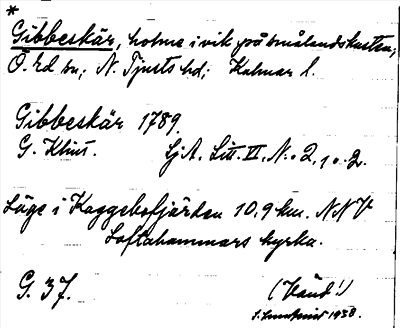 *
Gibbeskär, holme i vik på Smålandskusten,
Ö. Ed sn; N. Tjusts hd; Kalmar l.
Gibbeskär 1789.
G. Klint. Sj.A. Litt. VI, N:o 2, 1 o. 2.
Läge i Kaggebofjärden 10.9 km. NNV
Loftahammars kyrka.
G. 37. (Vänd!)
1938.